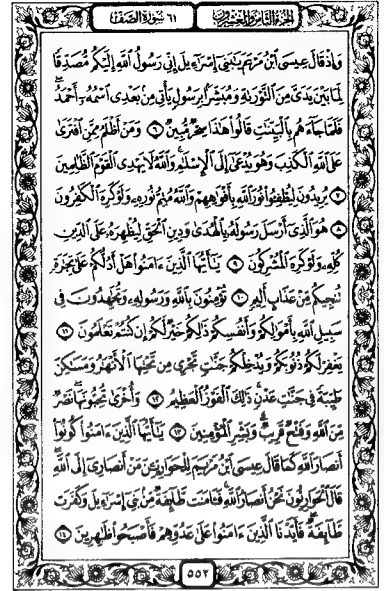 الجزء الثامن والعشرون
٦١ سورة الصف
وَإِذْ قَالَ عِيسَى ٱبْنُ مَرْيَمَ يَٰبَنِىٓ إِسْرَٰٓءِيلَ إِنِّى رَسُولُ ٱللَّهِ إِلَيْكُم مُّصَدِّقًا
لِّمَا بَيْنَ يَدَىَّ مِنَ ٱلتَّوْرَىٰةِ وَمُبَشِّرًۢا بِرَسُولٍ يَأْتِى مِنۢ بَعْدِى ٱسْمُهُۥٓ أَحْمَدُ
فَلَمَّا جَآءَهُم بِٱلْبَيِّنَٰتِ قَالُوا۟ هَٰذَا سِحْرٌ مُّبِينٌ ٦ وَمَنْ أَظْلَمُ مِمَّنِ ٱفْتَرَىٰ
عَلَى ٱللَّهِ ٱلْكَذِبَ وَهُوَ يُدْعَىٰٓ إِلَى ٱلْإِسْلَٰمِ وَٱللَّهُ لَا يَهْدِى ٱلْقَوْمَ ٱلظَّٰلِمِينَ
٧ يُرِيدُونَ لِيُطْفِـُٔوا۟ نُورَ ٱللَّهِ بِأَفْوَٰهِهِمْ وَٱللَّهُ مُتِمُّ نُورِهِۦ وَلَوْ كَرِهَ ٱلْكَٰفِرُونَ
٨ هُوَ ٱلَّذِىٓ أَرْسَلَ رَسُولَهُۥ بِٱلْهُدَىٰ وَدِينِ ٱلْحَقِّ لِيُظْهِرَهُۥ عَلَى ٱلدِّينِ
كُلِّهِۦ وَلَوْ كَرِهَ ٱلْمُشْرِكُونَ ٩ يَٰٓأَيُّهَا ٱلَّذِينَ ءَامَنُوا۟ هَلْ أَدُلُّكُمْ عَلَىٰ تِجَٰرَةٍ
تُنجِيكُم مِّنْ عَذَابٍ أَلِيمٍ ١٠ تُؤْمِنُونَ بِٱللَّهِ وَرَسُولِهِۦ وَتُجَٰهِدُونَ فِى
سَبِيلِ ٱللَّهِ بِأَمْوَٰلِكُمْ وَأَنفُسِكُمْ ذَٰلِكُمْ خَيْرٌ لَّكُمْ إِن كُنتُمْ تَعْلَمُونَ ١١
يَغْفِرْ لَكُمْ ذُنُوبَكُمْ وَيُدْخِلْكُمْ جَنَّٰتٍ تَجْرِى مِن تَحْتِهَا ٱلْأَنْهَٰرُ وَمَسَٰكِنَ
طَيِّبَةً فِى جَنَّٰتِ عَدْنٍ ذَٰلِكَ ٱلْفَوْزُ ٱلْعَظِيمُ ١٢ وَأُخْرَىٰ تُحِبُّونَهَا نَصْرٌ
مِّنَ ٱللَّهِ وَفَتْحٌ قَرِيبٌ وَبَشِّرِ ٱلْمُؤْمِنِينَ ١٣ يَٰٓأَيُّهَا ٱلَّذِينَ ءَامَنُوا۟ كُونُوٓا۟
أَنصَارَ ٱللَّهِ كَمَا قَالَ عِيسَى ٱبْنُ مَرْيَمَ لِلْحَوَارِيِّـۧنَ مَنْ أَنصَارِىٓ إِلَى ٱللَّهِ
قَالَ ٱلْحَوَارِيُّونَ نَحْنُ أَنصَارُ ٱللَّهِ فَـَٔامَنَت طَّآئِفَةٌ مِّنۢ بَنِىٓ إِسْرَٰٓءِيلَ وَكَفَرَت
طَّآئِفَةٌ فَأَيَّدْنَا ٱلَّذِينَ ءَامَنُوا۟ عَلَىٰ عَدُوِّهِمْ فَأَصْبَحُوا۟ ظَٰهِرِينَ ١٤
٥٥٢